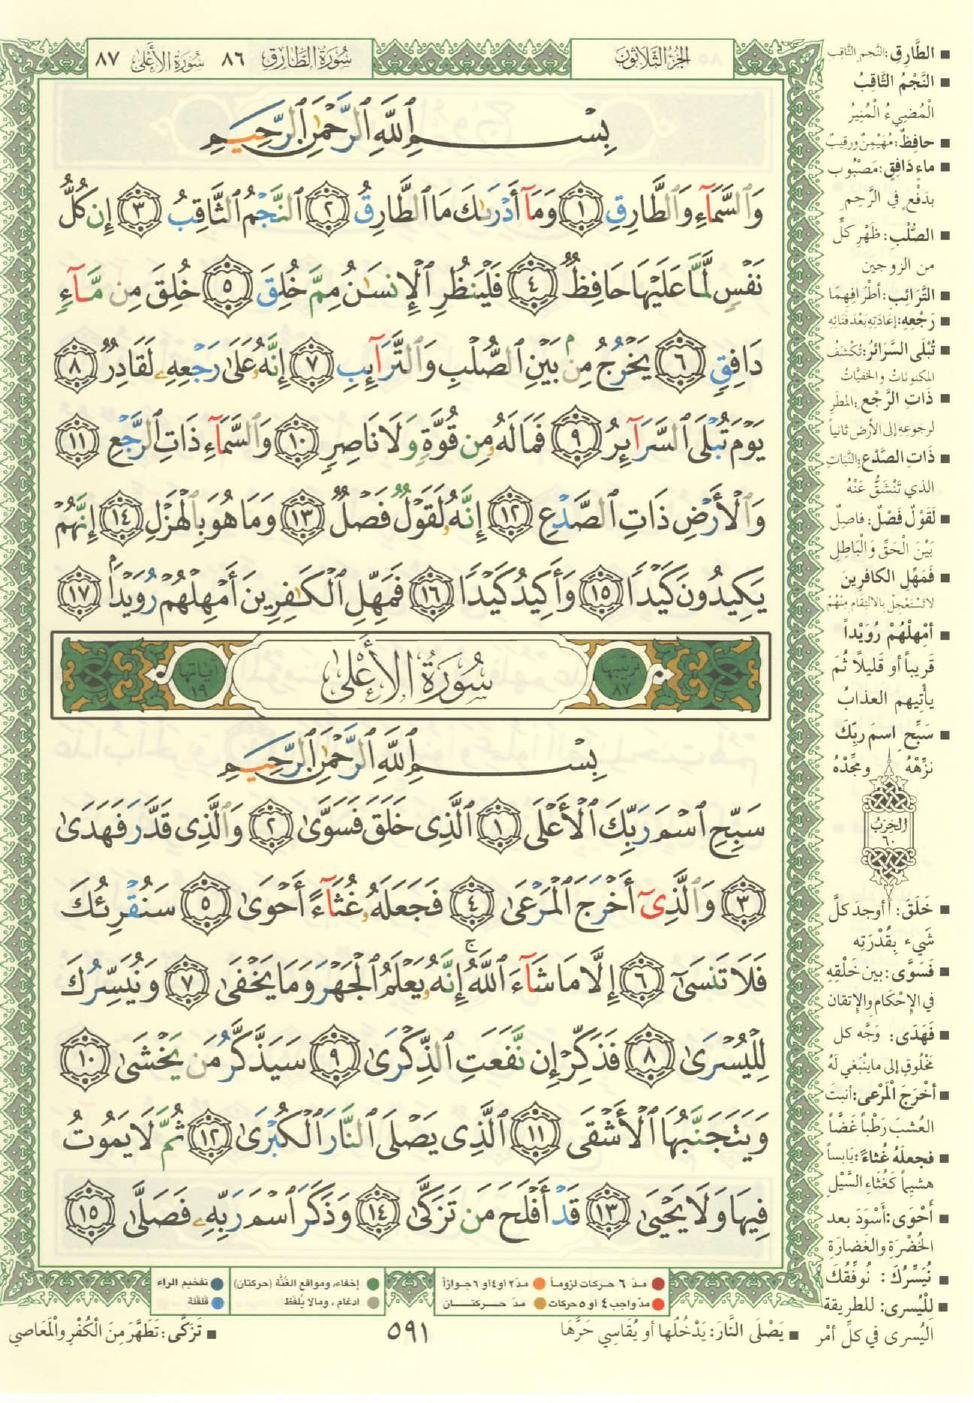 الجزء الثلاثون
سُورَةُ الطَّارِقِ ٨٦ سُورَةُ الأَعْلَى ٨٧
بِسْمِ ٱللَّهِ ٱلرَّحْمَٰنِ ٱلرَّحِيمِ
وَٱلسَّمَآءِ وَٱلطَّارِقِ ١ وَمَآ أَدْرَىٰكَ مَا ٱلطَّارِقُ ٢ ٱلنَّجْمُ ٱلثَّاقِبُ ٣ إِن كُلُّ
نَفْسٍ لَّمَّا عَلَيْهَا حَافِظٌ ٤ فَلْيَنظُرِ ٱلْإِنسَٰنُ مِمَّ خُلِقَ ٥ خُلِقَ مِن مَّآءٍ
دَافِقٍ ٦ يَخْرُجُ مِنۢ بَيْنِ ٱلصُّلْبِ وَٱلتَّرَآئِبِ ٧ إِنَّهُۥ عَلَىٰ رَجْعِهِۦ لَقَادِرٌ ٨
يَوْمَ تُبْلَى ٱلسَّرَآئِرُ ٩ فَمَا لَهُۥ مِن قُوَّةٍ وَلَا نَاصِرٍ ١٠ وَٱلسَّمَآءِ ذَاتِ ٱلرَّجْعِ ١١
وَٱلْأَرْضِ ذَاتِ ٱلصَّدْعِ ١٢ إِنَّهُۥ لَقَوْلٌ فَصْلٌ ١٣ وَمَا هُوَ بِٱلْهَزْلِ ١٤ إِنَّهُمْ
يَكِيدُونَ كَيْدًا ١٥ وَأَكِيدُ كَيْدًا ١٦ فَمَهِّلِ ٱلْكَٰفِرِينَ أَمْهِلْهُمْ رُوَيْدًۢا ١٧
ترتيبها ٨٧ سُورَةُ الأَعْلَى آياتها ١٩
بِسْمِ ٱللَّهِ ٱلرَّحْمَٰنِ ٱلرَّحِيمِ
سَبِّحِ ٱسْمَ رَبِّكَ ٱلْأَعْلَى ١ ٱلَّذِى خَلَقَ فَسَوَّىٰ ٢ وَٱلَّذِى قَدَّرَ فَهَدَىٰ
٣ وَٱلَّذِىٓ أَخْرَجَ ٱلْمَرْعَىٰ ٤ فَجَعَلَهُۥ غُثَآءً أَحْوَىٰ ٥ سَنُقْرِئُكَ
فَلَا تَنسَىٰٓ ٦ إِلَّا مَا شَآءَ ٱللَّهُ ۚ إِنَّهُۥ يَعْلَمُ ٱلْجَهْرَ وَمَا يَخْفَىٰ ٧ وَنُيَسِّرُكَ
لِلْيُسْرَىٰ ٨ فَذَكِّرْ إِن نَّفَعَتِ ٱلذِّكْرَىٰ ٩ سَيَذَّكَّرُ مَن يَخْشَىٰ ١٠
وَيَتَجَنَّبُهَا ٱلْأَشْقَى ١١ ٱلَّذِى يَصْلَى ٱلنَّارَ ٱلْكُبْرَىٰ ١٢ ثُمَّ لَا يَمُوتُ
فِيهَا وَلَا يَحْيَىٰ ١٣ قَدْ أَفْلَحَ مَن تَزَكَّىٰ ١٤ وَذَكَرَ ٱسْمَ رَبِّهِۦ فَصَلَّىٰ ١٥
■ الطَّارِقِ: النَّجم الثَّاقِب
■ النَّجْمُ الثَّاقِبُ
الْمُضِيءُ الْمُنِيرُ
■ حافِظٌ: مُهَيْمِنٌ ورقِيبٌ
■ ماء دَافِقٍ: مَصْبُوب
بدَفْعٍ في الرَّحِمِ
■ الصُّلْبِ: ظَهْرِ كلٍّ
من الزوجين
■ التَّرَائِبِ: أَطْرَافِهِمَا
■ رَجْعِهِ: إعَادَتِهِ بَعْدَ فَنَائِهِ
■ تُبْلَى السَّرَائِرُ: تُكْشَفُ
المكنونات والخفيَّاتُ
■ ذَاتِ الرَّجْعِ: المطَرِ
لرجوعِهِ إلى الأرضِ ثانياً
■ ذَاتِ الصَّدْعِ: النَّباتِ
الذي تَنْشَقُّ عَنْهُ
■ لَقَوْلٌ فَصْلٌ: فاصِلٌ
بَيْنَ الحَقِّ وَالْبَاطِلِ
■ فَمَهِّلِ الكافِرِينَ
لا تستَعْجِلْ بالانتِقامِ مِنْهُمْ
■ أَمْهِلْهُمْ رُوَيْداً
قَريباً أو قليلاً ثُمَّ
يأتِيهم العذابُ
■ سَبِّحِ اسْمَ ربِّكَ
نَزِّهْهُ ومَجِّدْهُ
الحزب ٦٠
■ خَلَقَ: أوجدَ كلَّ
شَيْءٍ بِقُدْرَتِهِ
■ فَسَوَّى: بين خَلْقِهِ
في الإحْكَامِ والإتقانِ
■ فَهَدَى: وَجَّه كل
مَخْلُوقٍ إلى ما ينْبَغي لَهُ
■ أَخْرَجَ الْمَرْعى: أنبتَ
العُشْبَ رَطْباً غَضّاً
■ فجعلَهُ غُثَاءً: يَابساً
هشيماً كَغُثَاءِ السَّيْلِ
■ أَحْوَى: أسْوَدَ بعد
الخُضْرَةِ والغَضَارَةِ
■ نُيَسِّرُكَ: نُوفِّقُكَ
■ لِلْيُسرى: للطريقةِ
اليُسرى في كلِّ أَمْرٍ
■ يَصْلَى النَّارَ: يَدْخُلُها أو يُقَاسِي حَرَّهَا
■ تَزَكَّى: تَطَهَّرَ مِنَ الْكُفْرِ والْمَعَاصِي
مدّ ٦ حركات لزوماً مدّ ٢ او ٤ او ٦ جوازاً
مدّ واجب ٤ أو ٥ حركات مدّ حركتان
إخفاء، ومواقع الغُنَّة (حركتان) تفخيم الراء
ادغام، ومالا يُلفَظ قلقلة
٥٩١